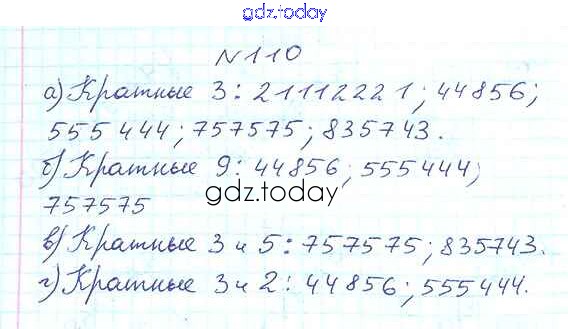 gdz.today
№110
а) Кратные 3: 21112221; 44856;
555444; 757575; 835743.
б) Кратные 9: 44856; 555444;
gdz.today
757575
в) Кратные 3 и 5: 757575; 835743.
г) Кратные 3 и 2: 44856; 555444.